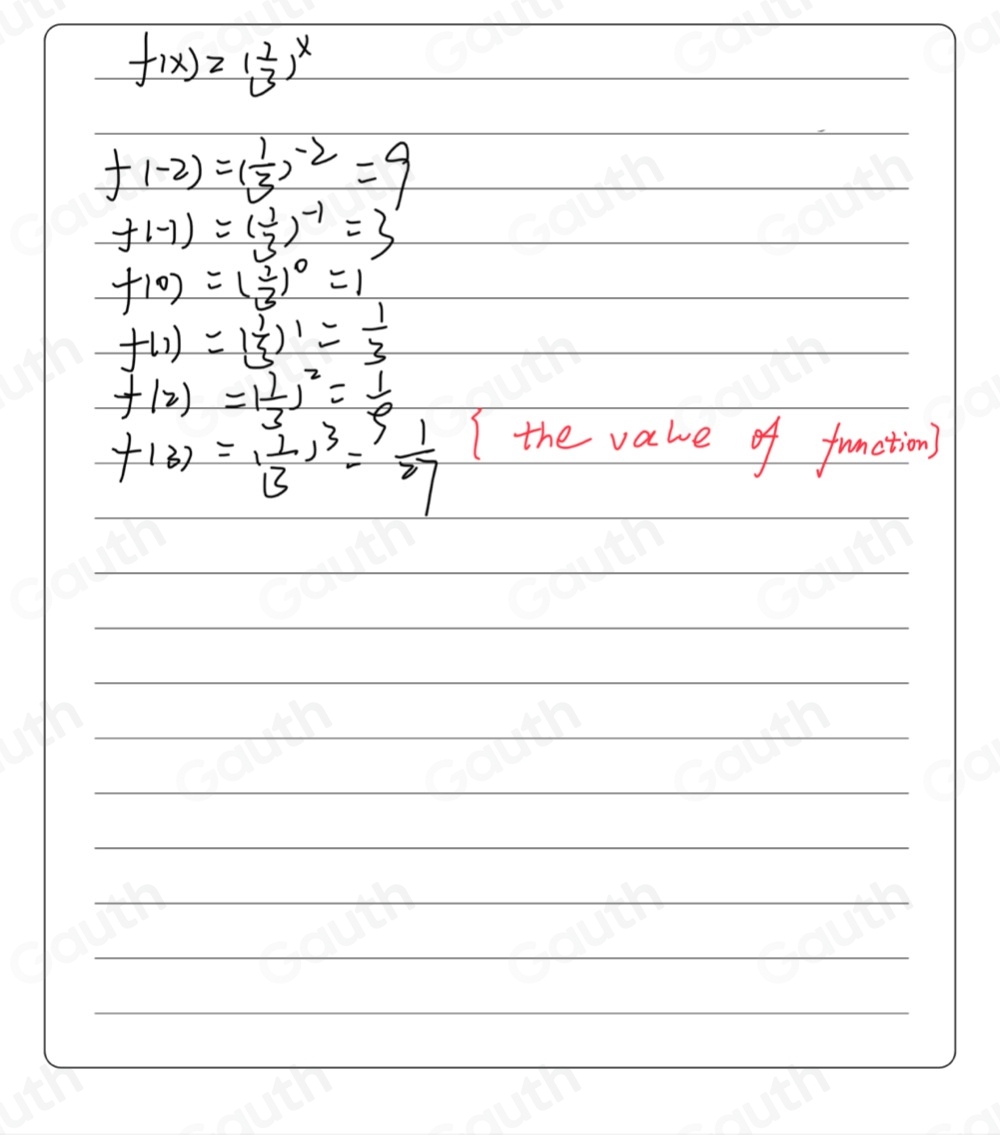 f(x) = (1/3)^x
f(-2) = (1/3)^-2 = 9
f(-1) = (1/3)^-1 = 3
f(0) = (1/3)^0 = 1
f(1) = (1/3)^1 = 1/3
f(2) = (1/3)^2 = 1/9
f(3) = (1/3)^3 = 1/27 { the value of function}
Gauth